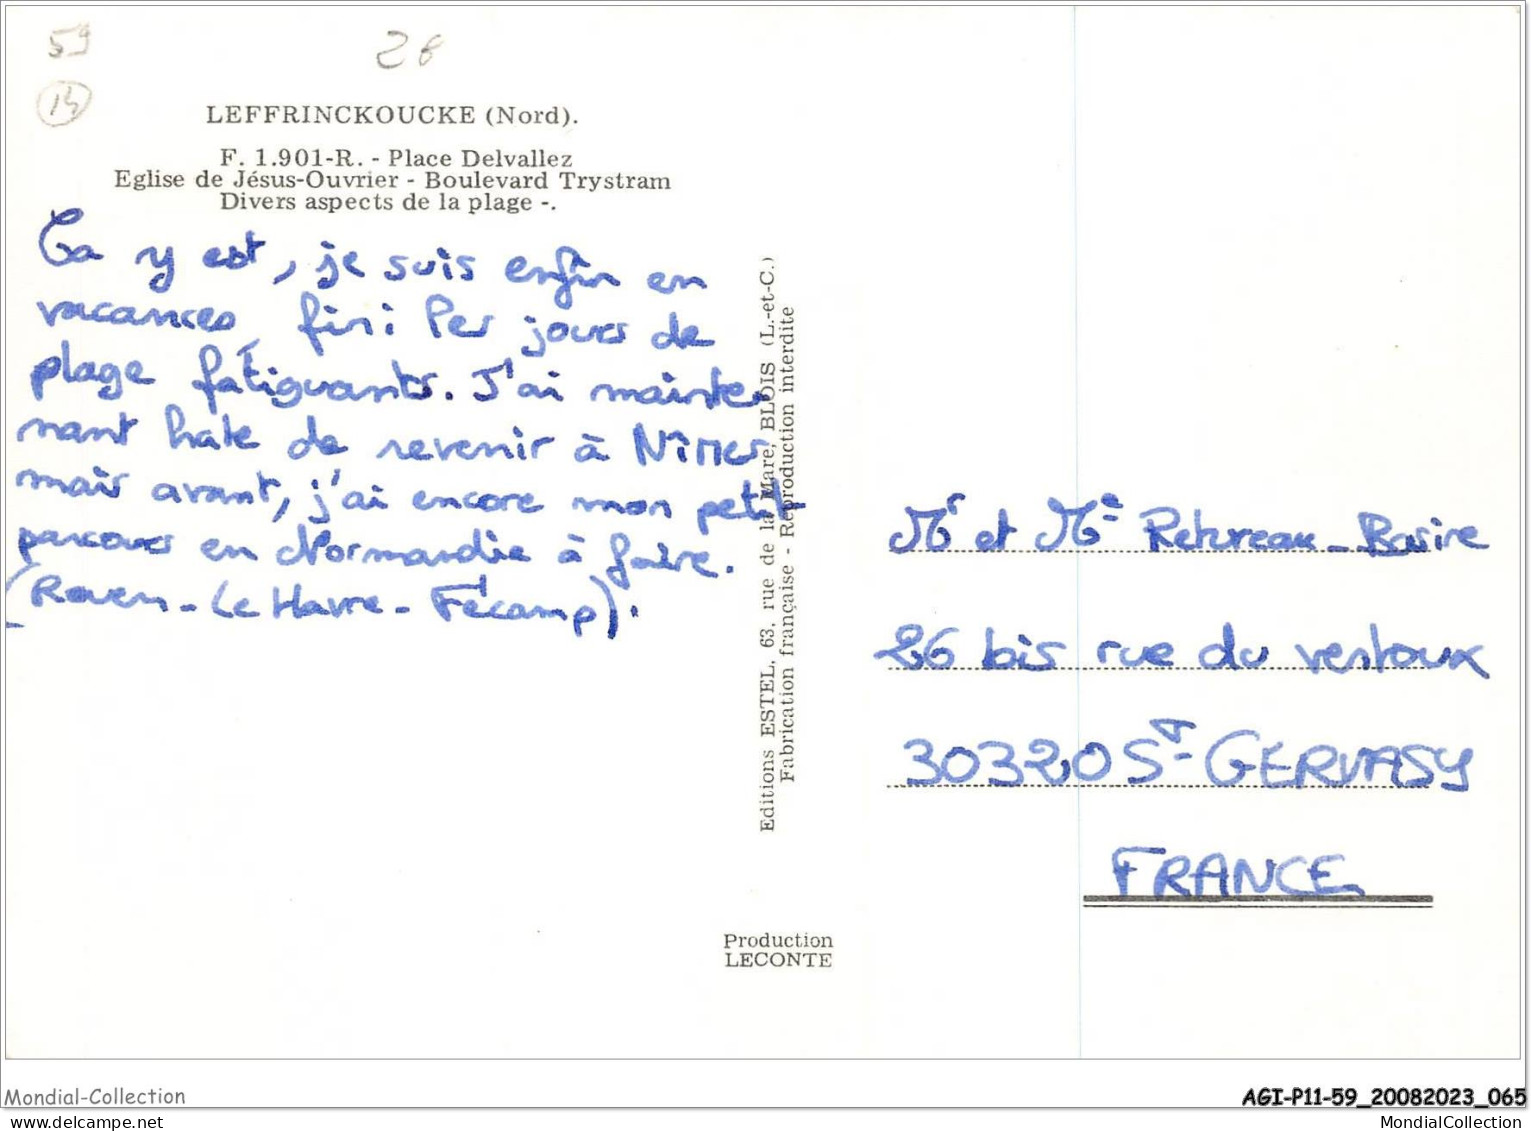 59
28
14
LEFFRINCKOUCKE (Nord).
F. 1.901-R. - Place Delvallez
Eglise de Jésus-Ouvrier - Boulevard Trystram
Divers aspects de la plage -.
Ca y est, je suis enfin en
vacances, fini les jours de
plage fatiguants. J'ai mainte
nant hate de revenir à Nîmes
mais avant, j'ai encore mon petit
parcours en Normandie à faire.
(Rouen - Le Havre - Fécamp).
Editions ESTEL, 63, rue de la Mare, BLOIS (L.-et-C.)
Fabrication française - Reproduction interdite
Mr et Me Retureau - Basire
26 bis rue du ventoux
30320 ST - GERVASY
FRANCE
Production
LECONTE
Mondial-Collection
AGI-P11-59_20082023_065
MondialCollection